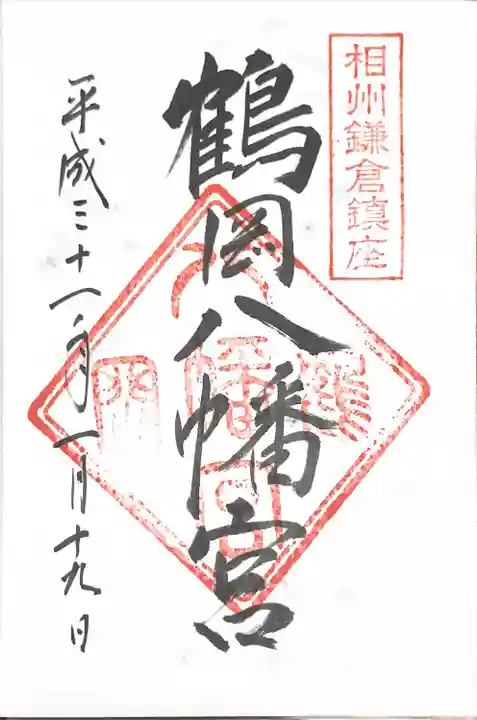 相州鎌倉鎮座
鶴岡八幡宮
平成三十一年一月十九日